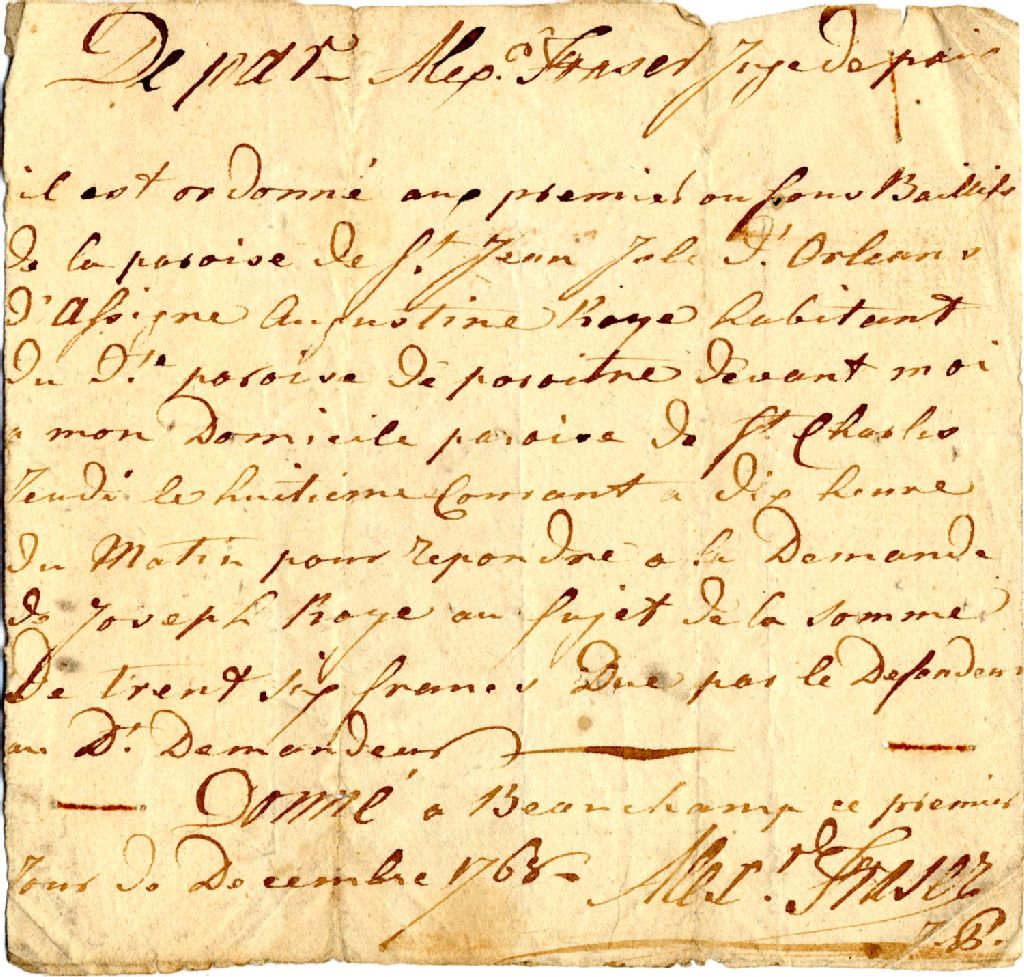 De par Alexr. Fraser Juge de paix
il est ordonné aux premier ou sous Baillifs
de la paroise de St. Jean Isle d'. Orleans
d'Assigne Augustine Roye habitant
du d.te paroise dé paroitre dévant moi
a mon Domicile paroise de St. Charles
Jeudi le huitieme Courant a dix heure
du Matin pour repondre a la Demande
de Joseph Roye au sujet de la somme
De trent six francs Due par le Defendeur
au Dt. Demandeur
Donné a Beauchamp ce premier
Jour de Decembre 1768
Alexr. Fraser
J.P.